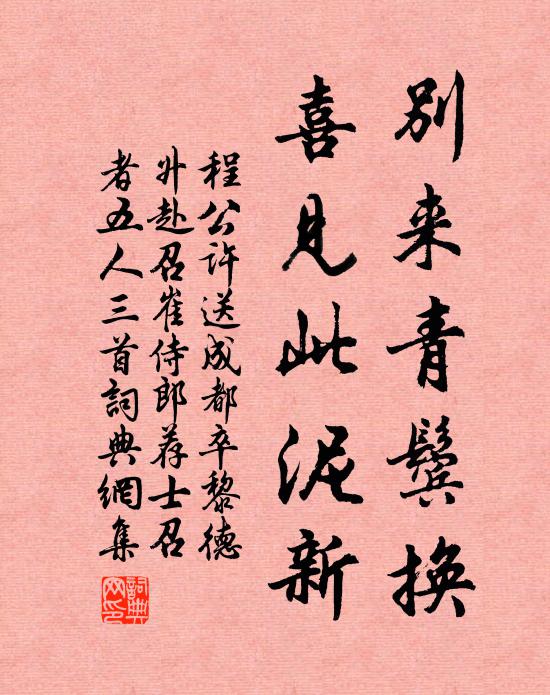 别来青鬓换
喜见此泥新
程公许送成都卒黎德
升赴召崔侍郎荐士召
者五人三首詞典網集
詞典